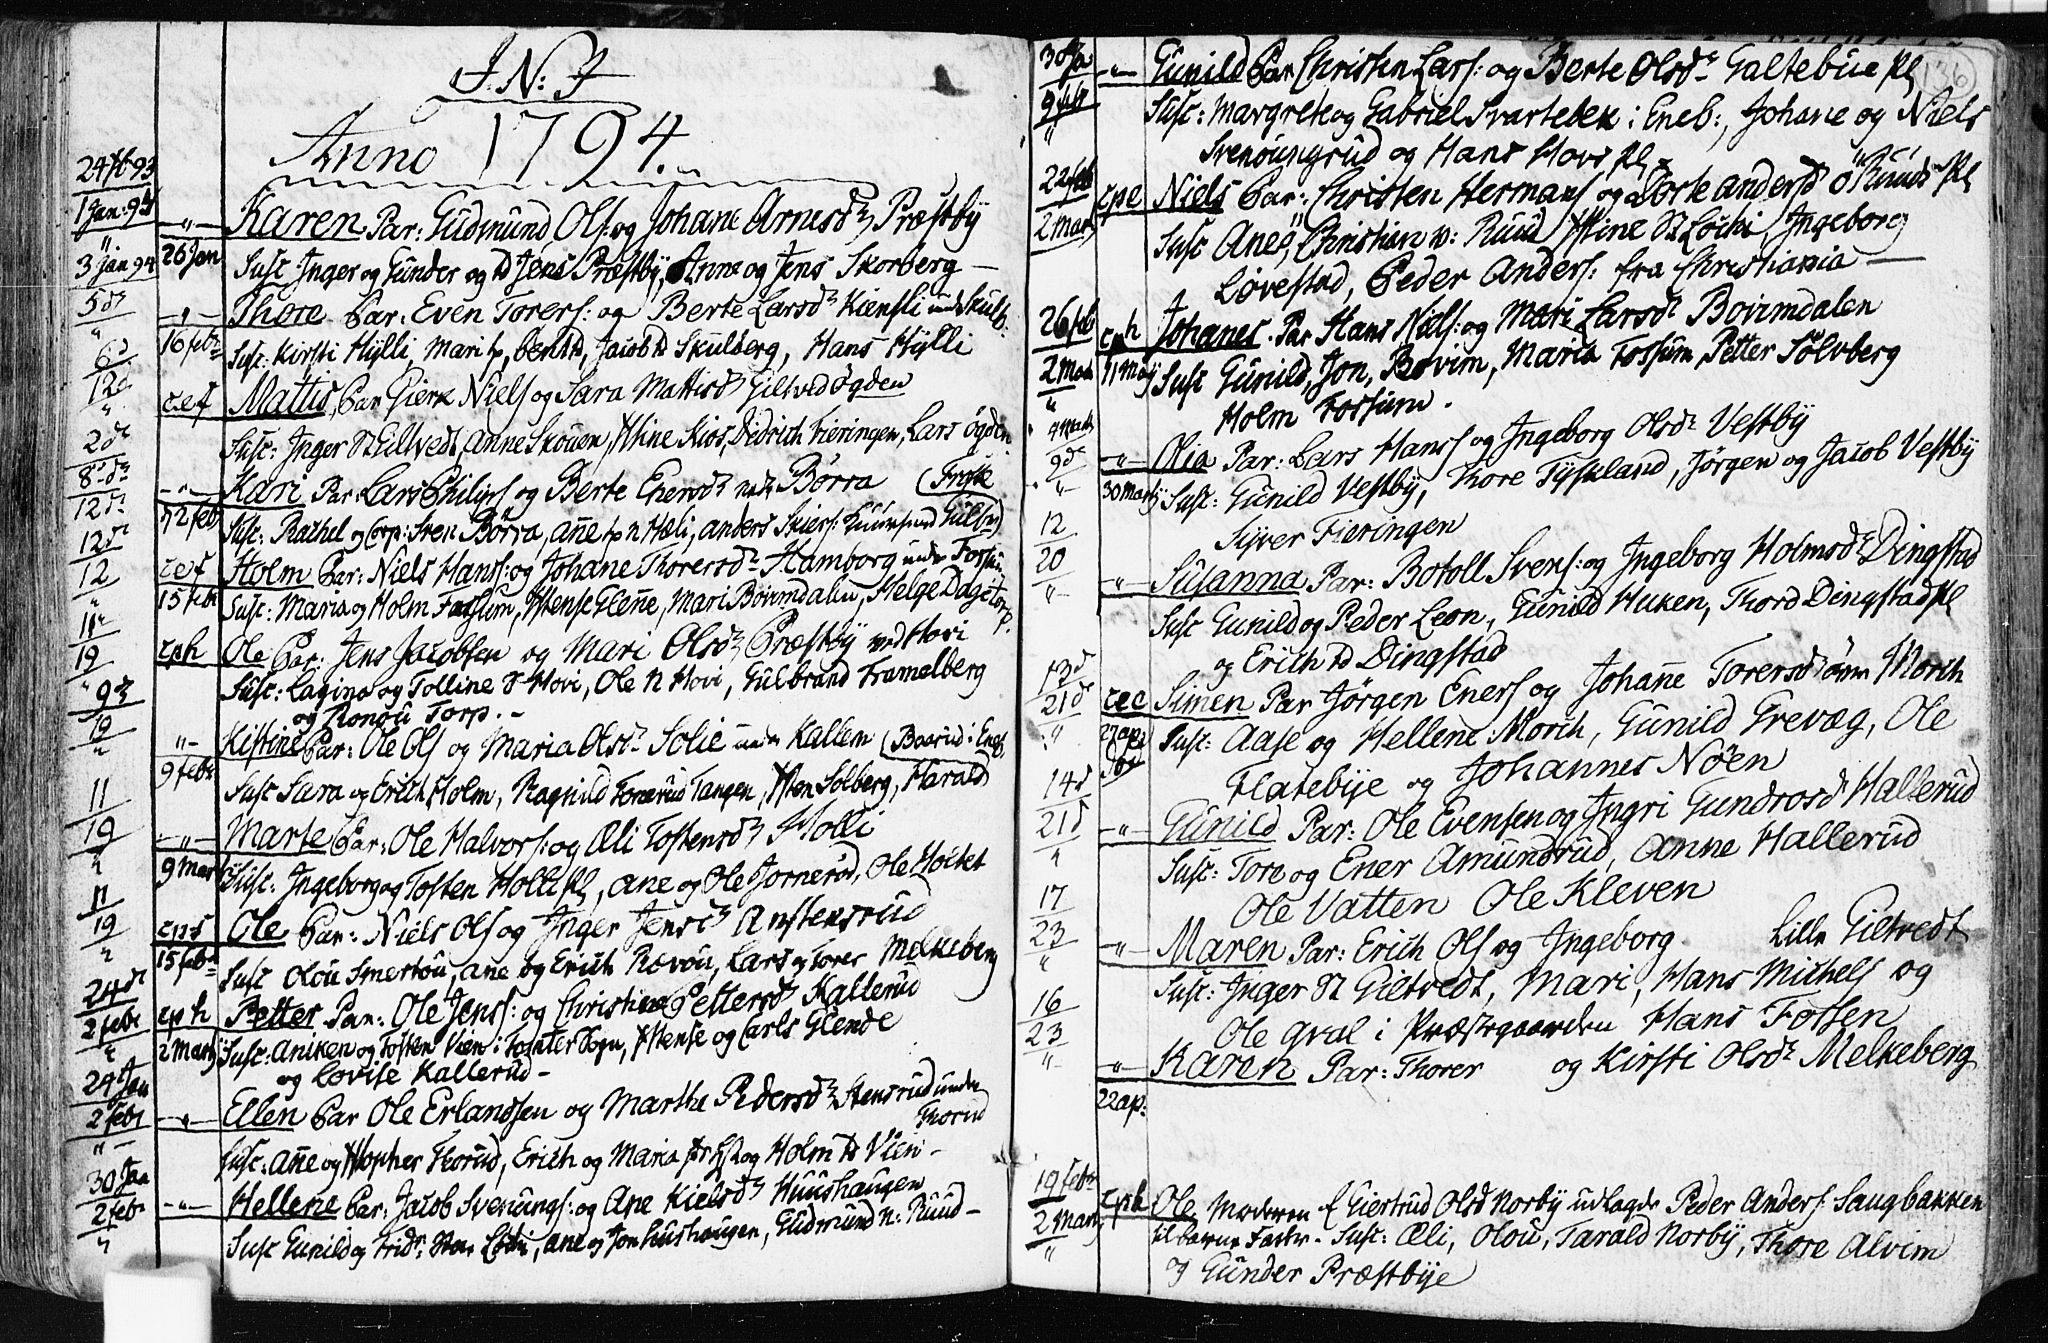 J. N. J
Anno 1794.
24 xb 93
1 Jan: 94 Karen Par: Gudmund Ols: og Johane Arnesdr Præstby
3 Jan 94 26 Jan Susc Inger og Gunder og td Jens Præstby, Anne og Jens Skorberg
5 dr Thore Par: Even Torers: og Berte Larsdr Kiensli und Skulb:
6 d 16 febr Susc: Kirsti Hylli, Mari, Jacob td Skulberg, Hans Hylli
12 d cef Mattis, Par Gierk Niels og Sara Mattisdr Giltved Ögden
2 dr Susc: Inger St Giltvedt, Anne Skouen, Xstine Kios, Didrich Fieringen, Lars Ögden
8 dr Kari Par Lars Philips og Berte Enersdr Börra (Trygst
12 dr 12 feb Susc: Rachel og Corp: Sven Börra, Gulbr
12 dr cef Holm Par: Niels Hans: og Johane Thoresdr Hamborg under Fossum
12 15 febr Susc: Maria og Holm Fossum, Xstense Glene, Mari Bövimdalen, Helge Dagstorp.
11 cph Ole Par: Jens Jacobsen og Mari Olsdr Præstby ved Hovi
19 Susc: Lagina og Tolline St Hovi, Ole N Hovi, Gulbrand Tramelberg
og Ronou Torp. -
9 dr
19 Kistine Par: Ole Ols og Maria Olsdr Solie under Kallem (Baarud i Eneb:
9 febr Susc Sara og Erich Holm, Ragnild Tangen, Xsten Solberg, Harald
11
19 Marte Par: Ole Halvors: og Æli Tostensdr Holli
9 Marty Susc: Ingeborg og Tosten Holli pl, Ane og Ole Jornerød, Ole Hoitet
11
19 cps Ole Par: Niels Ols og Inger Jensdr Anstensrud
15 febr Susc Olou Smertou, ane og Erich Rævou, Lars og Torer Melkeberg
24 dr
2 febr cph Petter Par: Ole Jens: og Christine Pettersdr Kallerud
2 Marty Susc: Aniken og Tosten Vien i Tomter Sogn, Xstense og Carls Glende
og Lovise Kallerud -
24 Jan
2 febr Ellen Par Ole Erlandsen og Marthe Pedersdr Stensrud under
Thorud
Susc: Ane og Xstopher Thorud, Erich og Maria og Holm td Vien -
30 Jan
2 febr Hellene Par: Jacob Svenungs: og Ane Kielsdr Huushaugen
Susc Gunild og ane og Jon huushaugen, Gudmund N: Ruud -
30 Ja Gunild Par Christen Lars: og Berte Olsdr Galtebue pl 136
9 feb Susc: Margrete og Gabriel Svartebek i Eneb:, Johane og Niels
Svenoungrud og Hans Hovs pl
22 feb cpe Niels Par: Christen Hermans og Dorte Andersd Ö Ruuds pl
2 Marty Susc Ane, Christian v: Ruud Xstine St Löcki, Ingeborg
Lövestad, Peder Anders: fra Christiania
26 feb cph Johanes. Par Hans Niels: og Mari Larsdr Bovimdalen
2 Marty 11 May Susc Gunild, Jon, Bovim, Maria Fossum, Petter Sölvberg
Holm Fossum.
4 Marty
9 dr Olia Par: Lars Hans og Ingeborg Olsdr Vestby
30 Marty Susc: Gunild Vestby, Thore Tyskland, Jörgen og Jacob Vestby
Syver Fieringen
12
20 Susanna Par: Botoll Svens: og Ingeborg Holmsdr Dingstad
Susc Gunild og Peder Leon, Gunild Huken, Thord Dingstad pl
og Erich td Dingstad
13 d
21 d cee Simen Par Jörgen Eners og Johane Torersd Morch
27 ap: Susc: Aase og Hellene Morch, Gunild Grevæg, Ole
Flatebye og Johannes Nöen
14 d
21 d Gunild Par: Ole Evensen og Ingri Gundrosd Hallerud
Susc: Tore og Ener Amundrud, Anne Hallerud
Ole Vatten Ole Kleven
17
23 Maren Par: Erich Ols og Ingeborg Lille Giltvedt
Susc: Inger St Giltvedt, Mari, Hans Michels og
Ole Gral i Præstegaarden Hans Fossen
16
23 Karen Par: Thorer og Kirsti Olsdr Melkeberg
22 ap:
19 febr cph Ole Moderen f Giertrud Olsd Norby udlagde Peder Anders: Saugbakken
2 Marty til barne Fader - Susc: Æli, Olou, Tarald Norby, Thore Alvim
og Gunder Præstbye